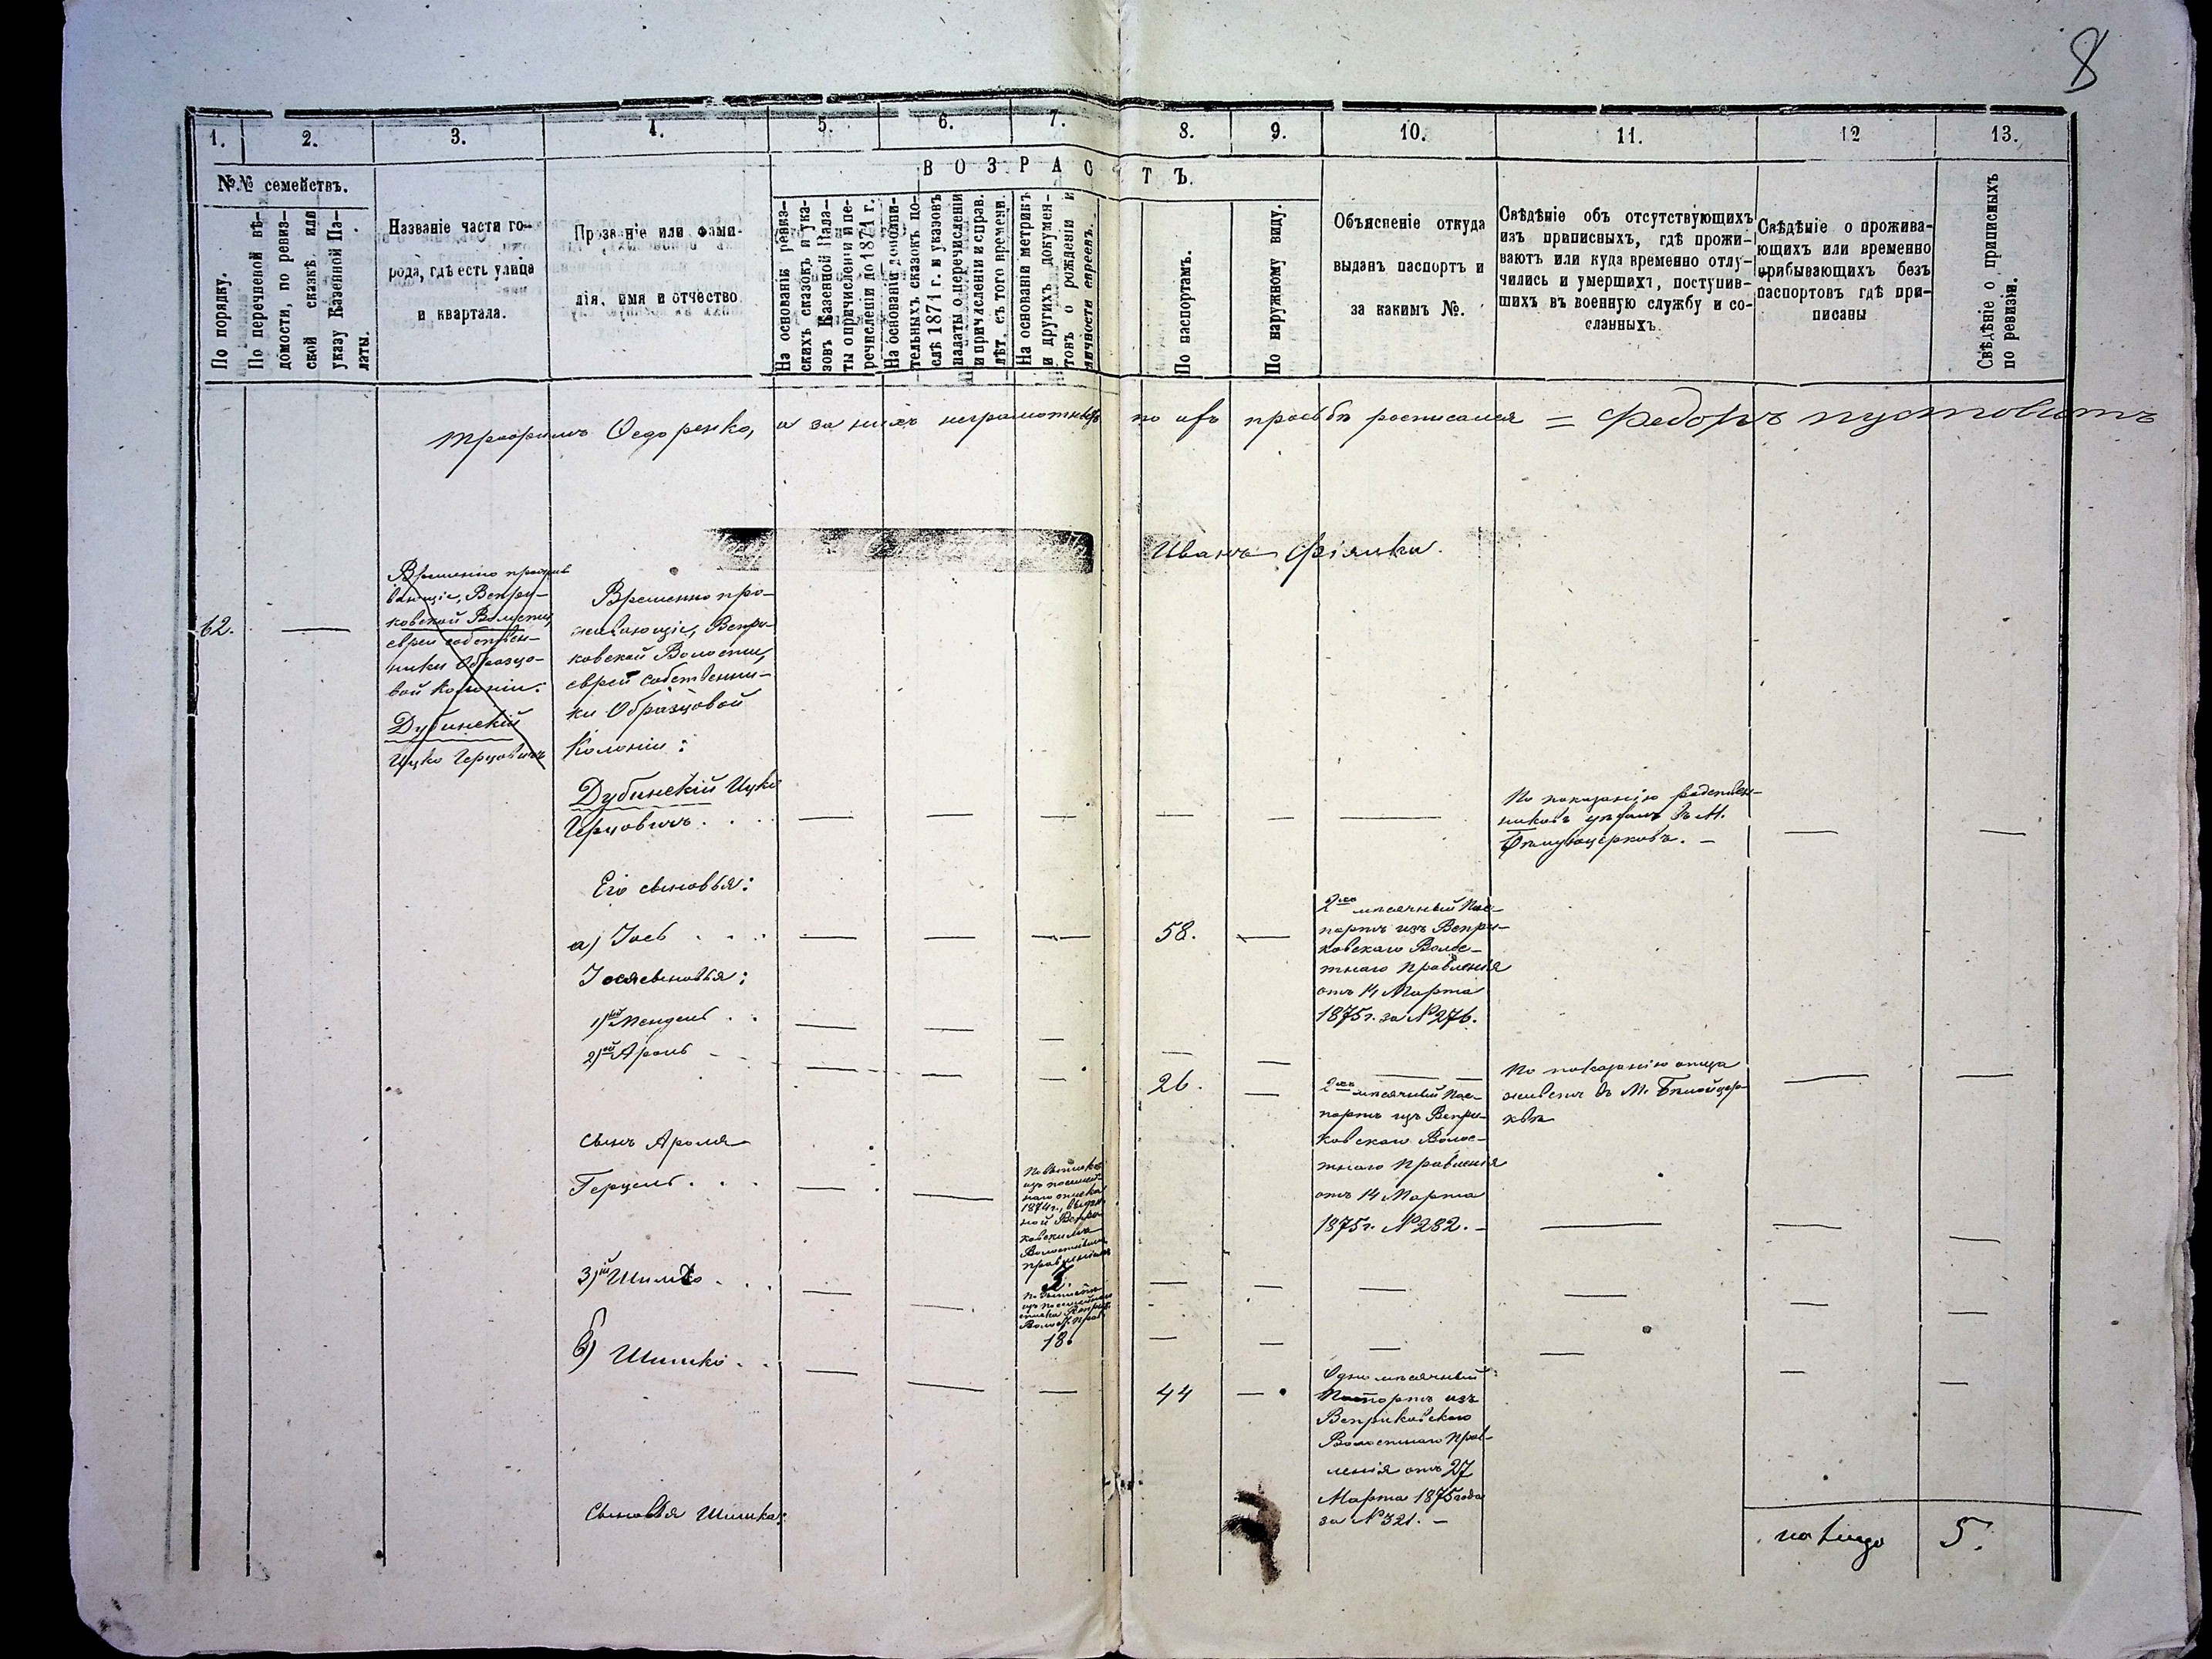 8
1. 2. 3. 4. 5. 6. 7. 8. 9. 10. 11. 12 13.
№№ семействъ.
ВОЗРАСТЪ.
По порядку.
По перечневой вѣ-
домости, по ревиз-
ской сказкѣ или
указу Казенной Па-
латы.
Названіе части го-
рода, гдѣ есть улица
и квартала.
Прозваніе или фами-
лія, имя и отчество
На основаніи ревиз-
скихъ сказокъ и ука-
зовъ Казенной Пала-
ты о причисленіи и пе-
речисленіи до 1871 г.
На основаніи дополни-
тельныхъ сказокъ по-
слѣ 1871 г. и указовъ
палаты о перечисленіи
и причисленіи и справ.
лѣт. съ того времени.
На основаніи метрикъ
и другихъ докумен-
товъ о рожденіи и
личности евреевъ.
По паспортамъ.
По наружному виду.
Объясненіе откуда
выданъ паспортъ и
за какимъ №.
Свѣдѣніе объ отсутствующихъ
изъ приписныхъ, гдѣ прожи-
ваютъ или куда временно отлу-
чились и умершихъ, поступив-
шихъ въ военную службу и со-
сланныхъ.
Свѣдѣніе о прожива-
ющихъ или временно
прибывающихъ безъ
паспортовъ гдѣ при-
писаны
Свѣдѣніе о приписныхъ
по ревизіи.
Трофимъ Федоренко, а за нихъ неграмотныхъ по ихъ просьбѣ росписался = Федоръ пустовитъ
Иванъ
62.
Временно прожив
вающіе, Вепри-
ковской Волости,
евреи собствен-
ники Образцо-
вой Колоніи:
Дубинскій
Ицко Герцовичъ
Временно про-
живающіе, Вепри-
ковской Волости,
евреи собственни-
ки Образцовой
Колоніи:
Дубинскій Ицко
Герцовичъ . . .
По показанію родствен-
никовъ въ М.
Бѣлуюцерковъ. –
Его сыновья:
а) Іось . . .
58.
2хъ мѣсячный Пас-
портъ изъ Вепри-
ковскаго Волос-
тнаго Правленія
отъ 14 Марта
1875 г. за № 276.
Іося сыновья:
1)ый Мендель . .
По показанію отца
живетъ въ М. Бѣлойцер-
квѣ
2)ой Аронь - .
26.
2хъ мѣсячный Пас-
портъ изъ Вепри-
ковскаго Волос-
тнаго Правленія
отъ 14 Марта
1875 г. № 282. –
Сынъ Ароня
Герцель . . .
По выпискѣ
изъ посемей-
наго списка
1874 г., выдан
ной Вепри-
ковскимъ
Волостнымъ
правленіемъ
3.
3)ій Шимко . . .
18.
б) Шимко . .
44
Одномѣсячный
Паспортъ изъ
Веприковскаго
Волостнаго Прав-
ленія отъ 27
Марта 1875 года
за № 321. –
Сыновья Шимка:
на лицо 5.